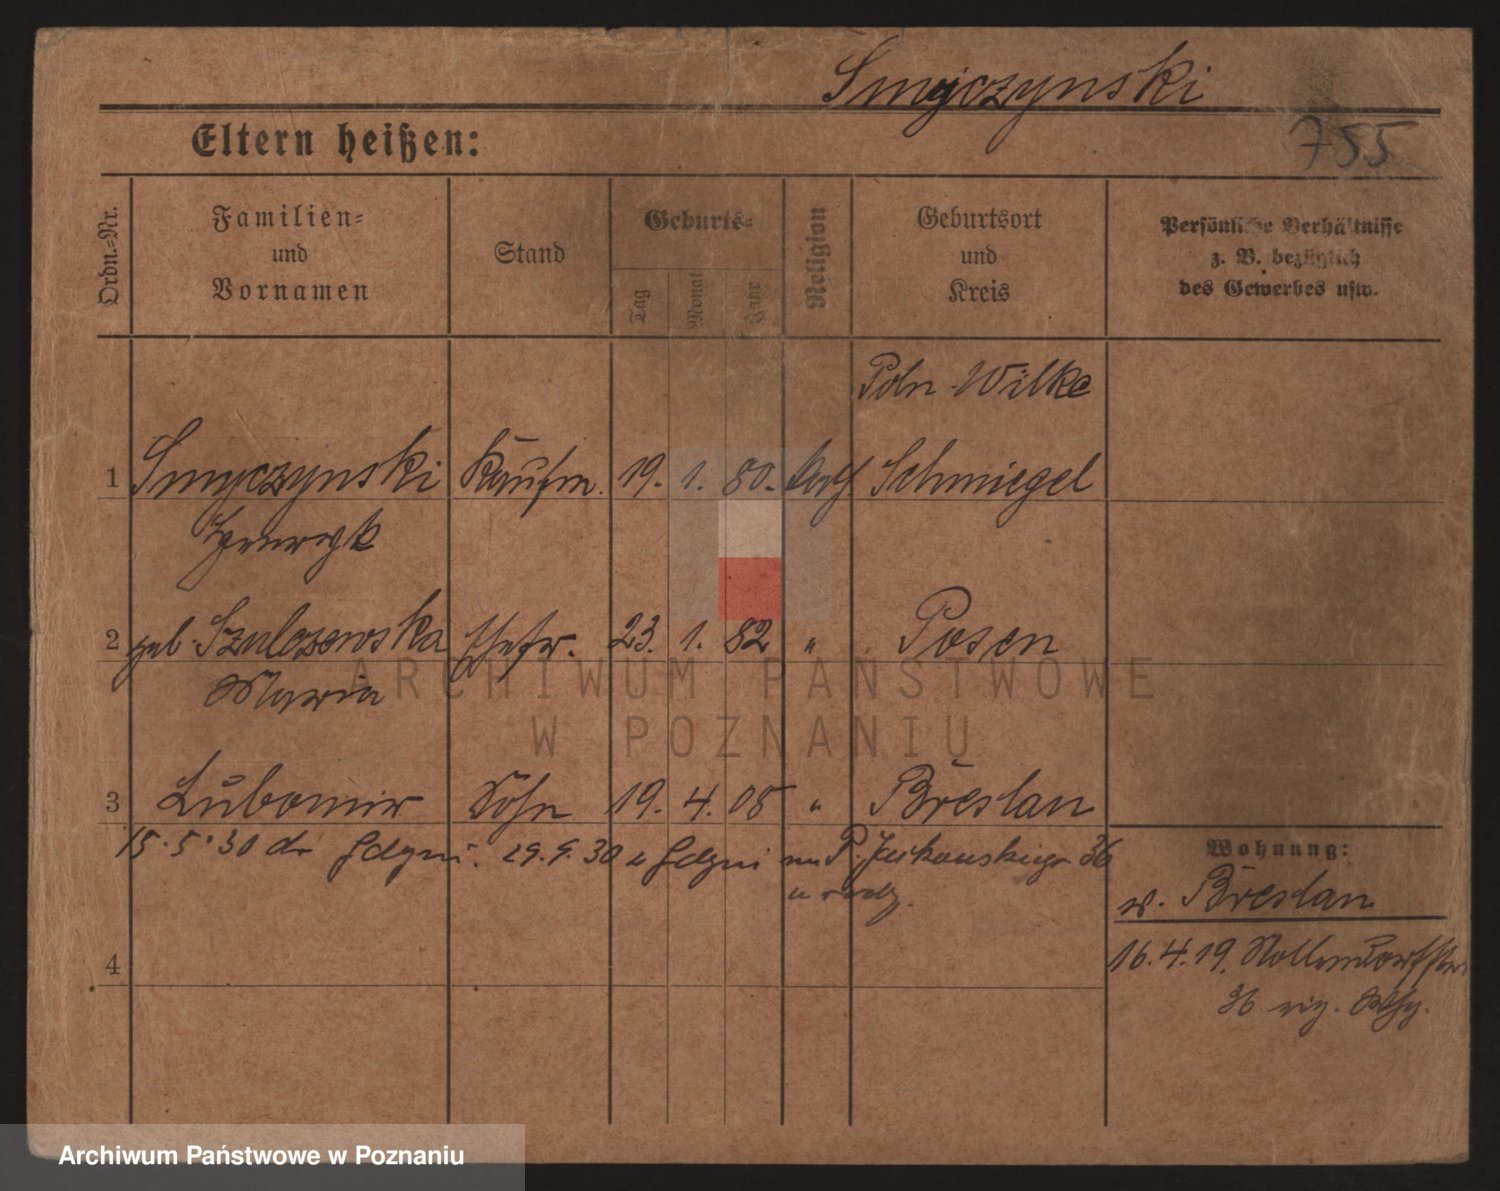 Smyczynski
Eltern heißen:
755
Ordn.-Nr.
Familien-
und
Vornamen
Stand
Geburts-
Tag
Monat
Jahr
Religion
Geburtsort
und
Kreis
Persönliche Verhältnisse
z. B. bezüglich
des Gewerbes usw.
Poln Wilke
1 Smyczynski Kaufm. 19. 1. 80. kath Schmiegel
Henryk
2 geb. Szulczewska Ehefr. 23. 1. 82 " Posen
Maria
3 Lubomir Sohn 19. 4. 08 " Breslau
15.5.30 do Gdyni. 29.9.30 z Gdyni 36
Wohnung:
v. Breslau
16.4.19. Nollendorfstr
36
4
ARCHIWUM PAŃSTWOWE
W POZNANIU
Archiwum Państwowe w Poznaniu